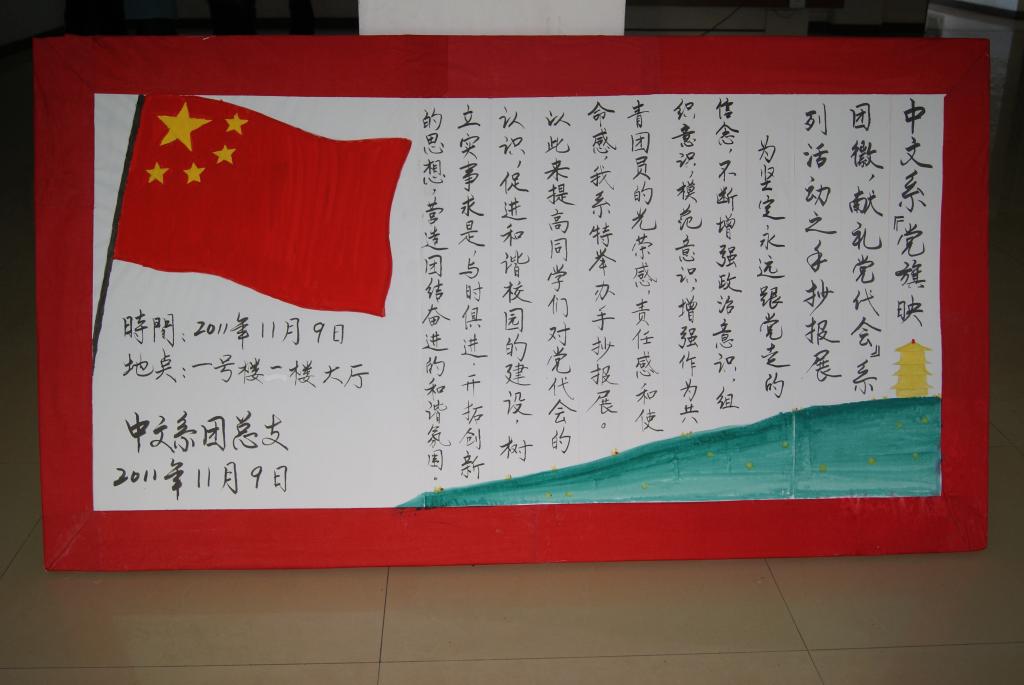 中文系『党旗映
团徽，献礼党代会』系
列活动之手抄报展
为坚定永远跟党走的
信念，不断增强政治意识，组
织意识，模范意识，增强作为共
青团员的光荣感，责任感和使
命感，我系特举办手抄报展。
以此来提高同学们对党代会的
认识，促进和谐校园的建设，树
立实事求是，与时俱进，开拓创新
的思想，营造团结奋进的和谐氛围。
時間：2011年11月9日
地点：一号楼一楼大厅
中文系团总支
2011年11月9日